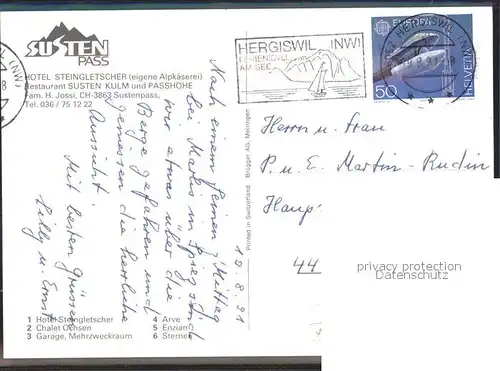 SUSTEN
PASS
HOTEL STEINGLETSCHER (eigene Alpkäserei)
Restaurant SUSTEN KULM und PASSHÖHE
Fam. H. Jossi, CH-3863 Sustenpass,
Tel. 036 / 75 12 22
12.8.91
Nach einem feinen z'Mittag
bei Marlis in Spiez sind
wir etwas über die
Berge gefahren und
geniessen die herrliche
Aussicht.
Mit besten Grüssen
Lilly u. Ernst
1 Hotel Steingletscher
2 Chalet Ochsen
3 Garage, Mehrzweckraum
4 Arve
5 Enzian
6 Sterne
Printed in Switzerland Brügger AG, Meiringen
HERGISWIL (NW)
FERIENIDYLL
AM SEE
EUROPA
HELVETIA
50
HERGISWIL (NW)
(NW)
Herrn und Frau
P. u. E. Martin-Rudin
Haup
44
privacy protection
Datenschutz